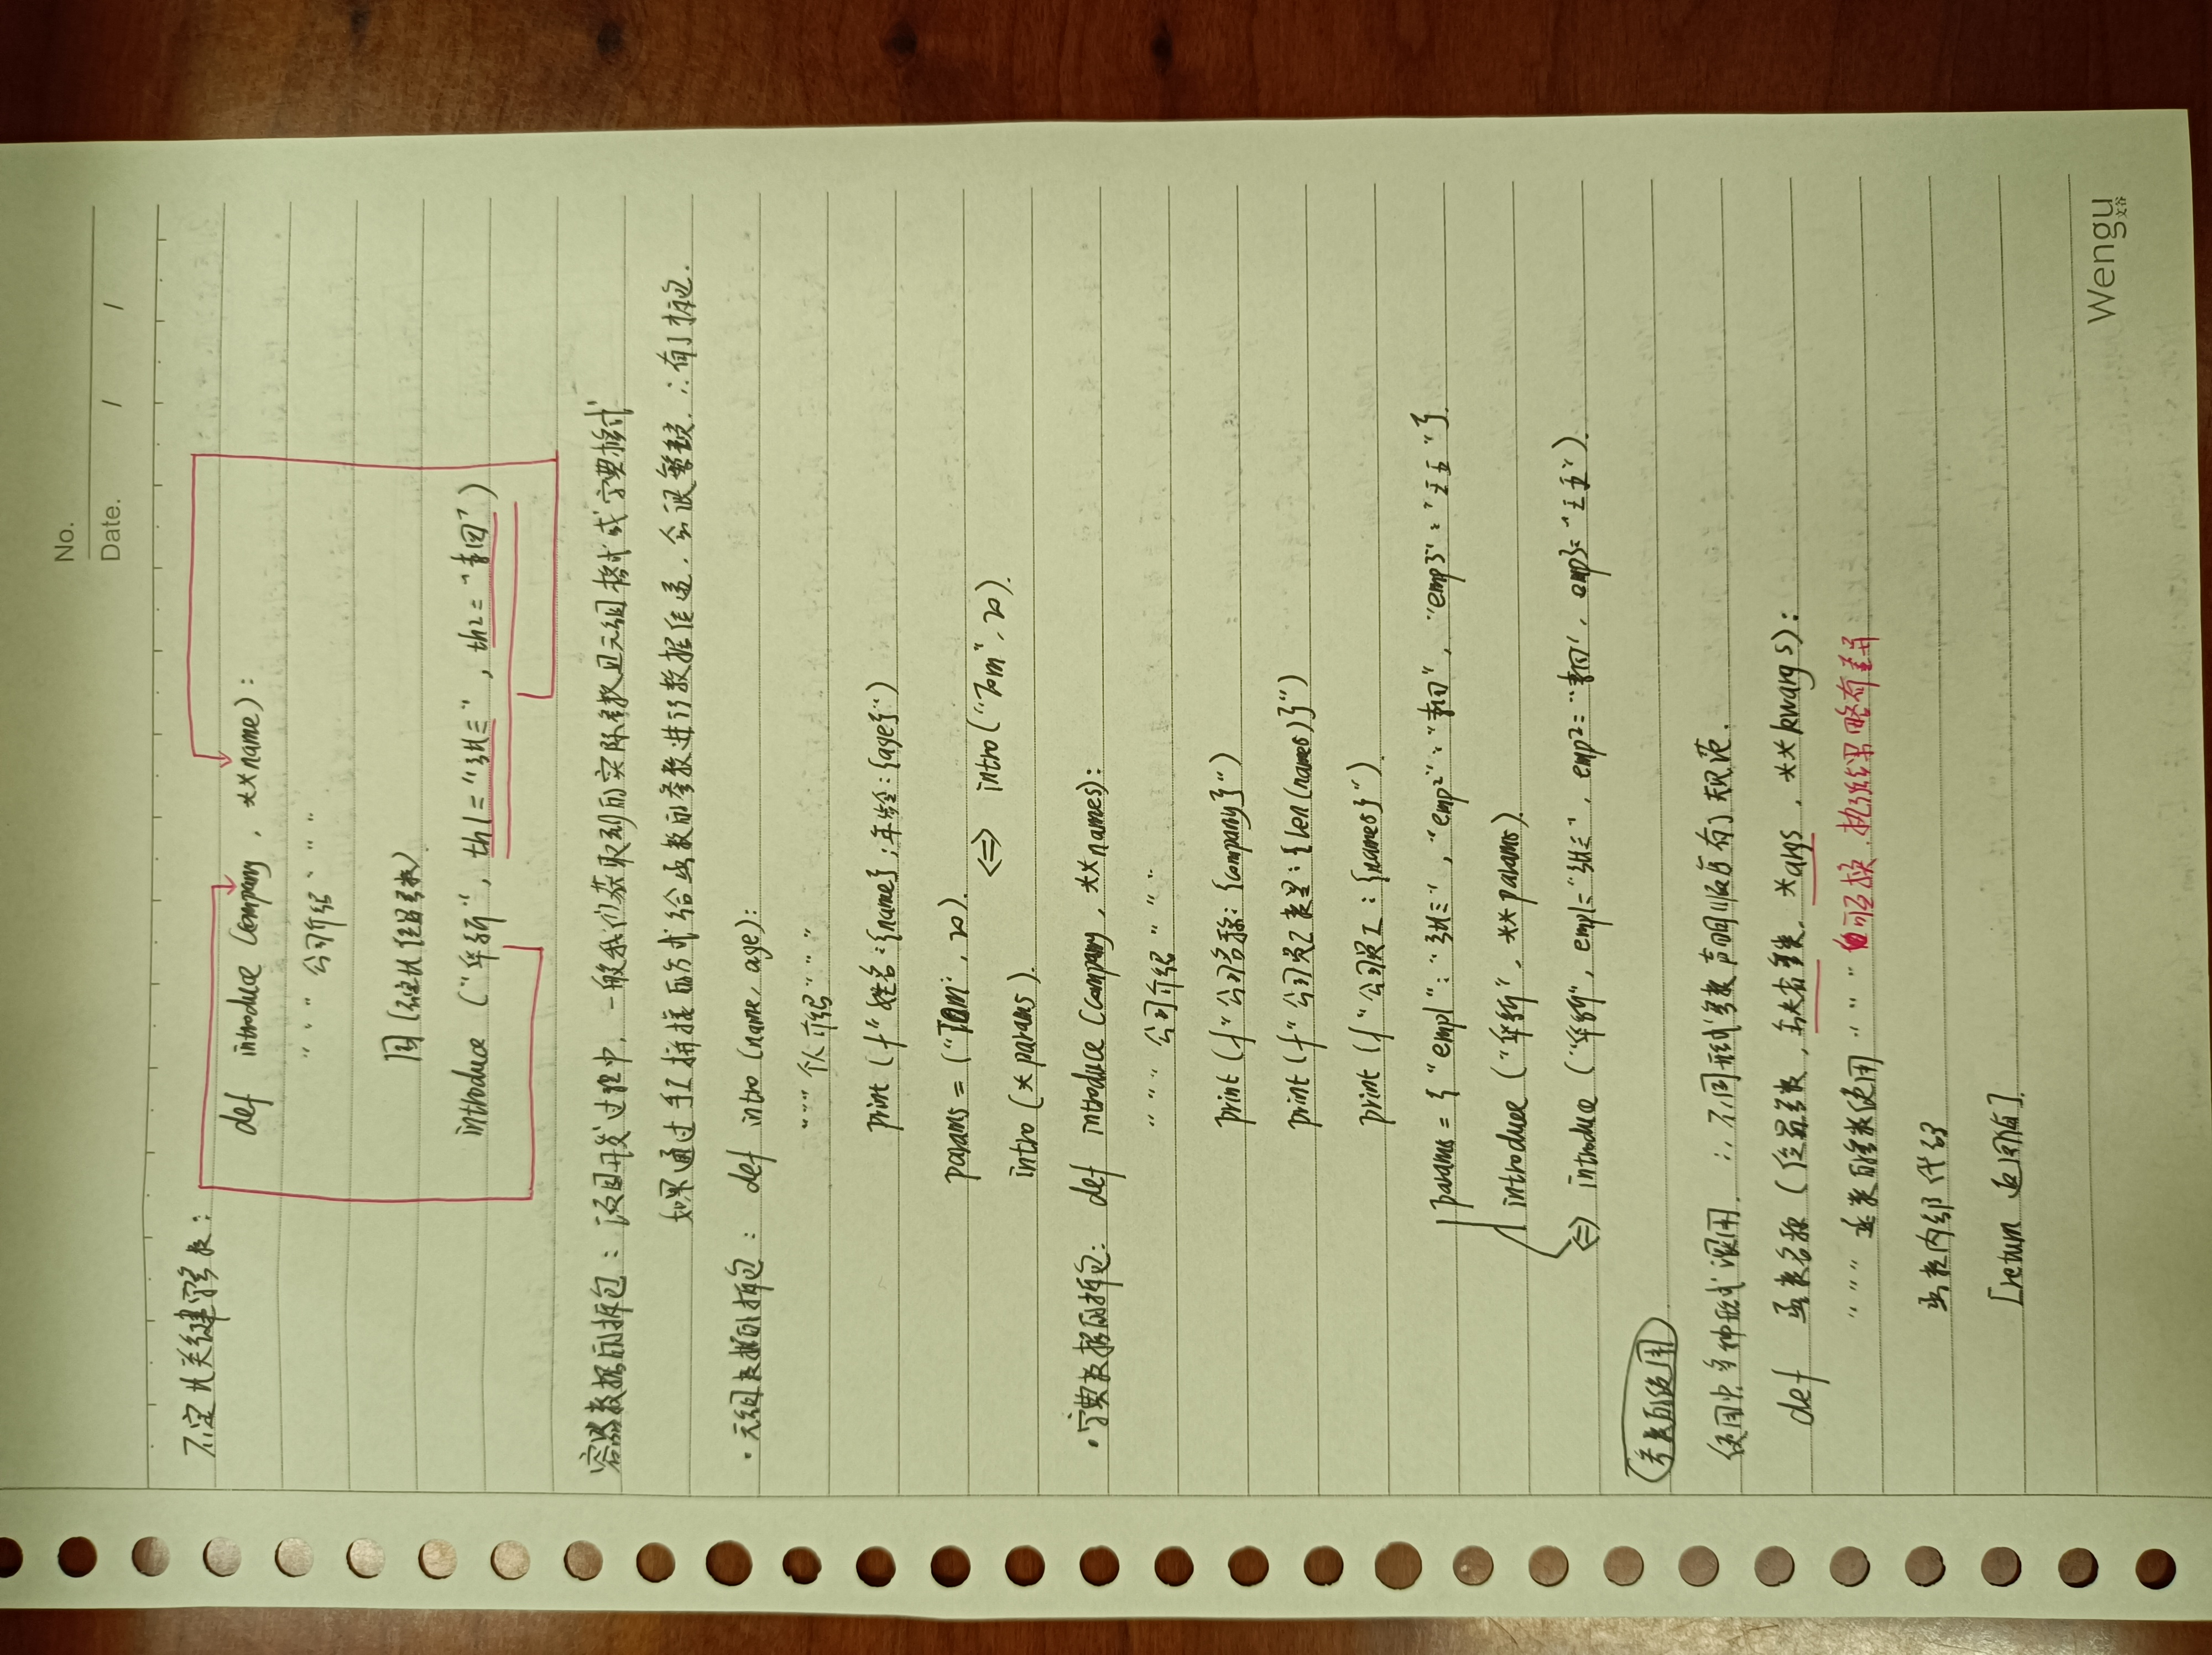 No.
Date. / /
不定长关键字参数:
def introduce (company, **name):
"""公司介绍"""
同(不定长位置参数)
introduce ("华新", th1="张三", th2="李四")
容器数据的拆包: 项目开发过程中, 一般我们获取到的实际参数是元组格式或字典格式
如果通过手工拼接的方式给函数的参数进行数据传递, 会很繁琐. ∴有了拆包.
·元组数据的拆包: def intro (name, age):
"""个人介绍"""
print (f"姓名:{name};年龄:{age}")
params = ("Tom", 20).
⇔ intro("Tom", 20).
intro (*params).
·字典数据的拆包: def introduce (company, **names):
"""公司介绍"""
print (f"公司名称: {company}")
print (f"公司员工数量: {len(names)}")
print (f"公司员工: {names}").
params = { "emp1": "张三", "emp2": "李四", "emp3": "王五" }.
introduce ("华新", **params).
⇔ introduce ("华新", emp1="张三", emp2="李四", emp3="王五").
参数的使用.
使用中多种形式混用. ∴ 不同形式参数声明顺序有了规范.
def 函数名称 (位置参数, 缺省参数, *args, **kwargs):
"""函数的参数使用""" 可互换, 执行结果略有差异
函数内部代码
[return 返回值].
Wengu
文谷